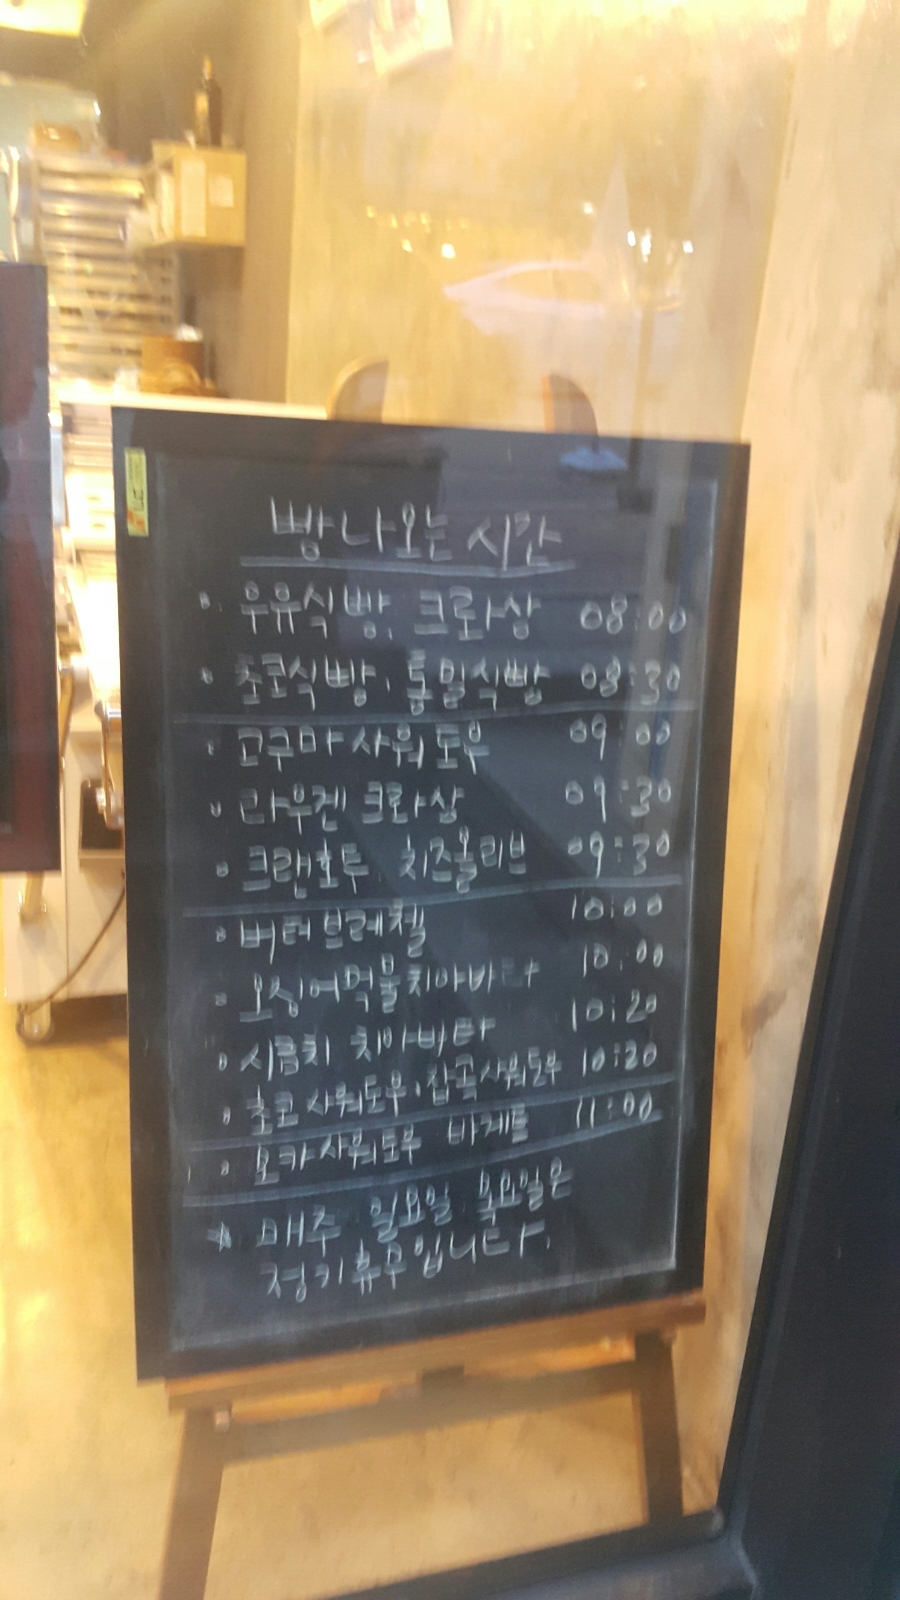 빵 나오는 시간
우유식빵, 크로와상 08:00
초코식빵, 통밀식빵 08:30
고구마 사워도우 09:00
라우겐 크로와상 09:30
크랜호두, 치즈올리브 09:30
버터브레첼 10:00
오징어먹물치아바타 10:00
시금치 치아바타 10:20
초코사워도우, 잡곡사워도우 10:20
모카사워도우 바게트 11:00
* 매주 일요일 목요일은
정기휴무입니다.